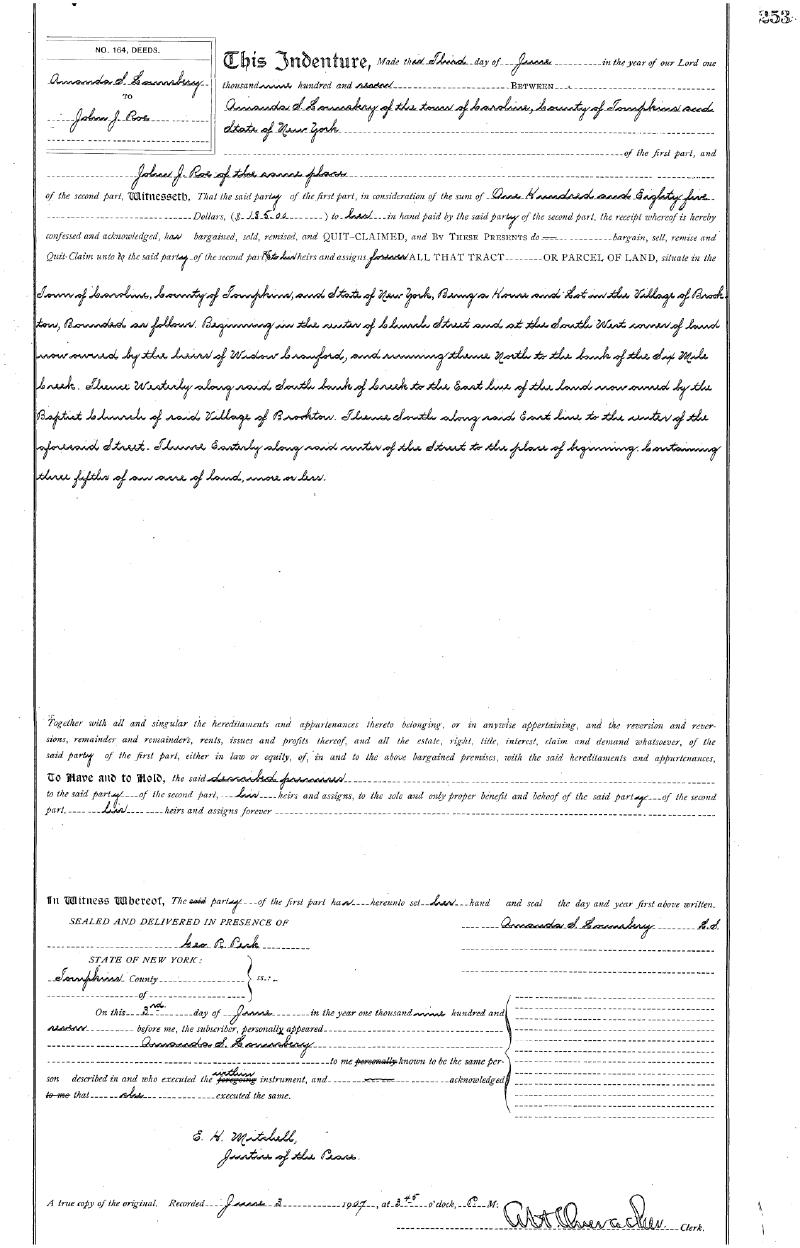 353
NO. 164, DEEDS.
Amanda S. Lounsbery
TO
John J. Roe
This Indenture, Made the Third day of June in the year of our Lord one
thousand nine hundred and seven BETWEEN
Amanda S. Lounsbery of the town of Caroline, County of Tompkins and
State of New York
of the first part, and
John J. Roe of the same place
of the second part, Witnesseth, That the said party of the first part, in consideration of the sum of One Hundred and Eighty five
Dollars, ($ 185.00 ) to her in hand paid by the said party of the second part, the receipt whereof is hereby
confessed and acknowledged, has bargained, sold, remised, and QUIT-CLAIMED, and BY THESE PRESENTS do bargain, sell, remise and
Quit-Claim unto the said party of the second part to his heirs and assigns, forever ALL THAT TRACT OR PARCEL OF LAND, situate in the
Town of Caroline, County of Tompkins, and State of New York, Being a House and Lot in the Village of Brook-
ton, Bounded as follows. Beginning in the center of Church Street and at the South West corner of land
now owned by the heirs of Widow Crauford, and running thence North to the bank of the Six Mile
Creek. Thence Westerly along said South bank of Creek to the East line of the land now owned by the
Baptist Church of said Village of Brookton. Thence South along said East line to the center of the
aforesaid Street. Thence Easterly along said center of the Street to the place of beginning. Containing
three fifths of an acre of land, more or less.
Together with all and singular the hereditaments and appurtenances thereto belonging, or in anywise appertaining, and the reversion and rever-
sions, remainder and remainders, rents, issues and profits thereof, and all the estate, right, title, interest, claim and demand whatsoever, of the
said party of the first part, either in law or equity, of, in and to the above bargained premises, with the said hereditaments and appurtenances,
To Have and to Hold, the said described premises
to the said party of the second part, his heirs and assigns, to the sole and only proper benefit and behoof of the said party of the second
part, his heirs and assigns forever
In Witness Whereof, The said party of the first part has hereunto set her hand and seal the day and year first above written.
SEALED AND DELIVERED IN PRESENCE OF
Amanda S. Lounsbery L.S.
Geo R. Peck
STATE OF NEW YORK:
Tompkins County ss.:
of
On this 3rd day of June in the year one thousand nine hundred and
seven before me, the subscriber, personally appeared
Amanda S. Lounsbery
to me personally known to be the same per-
son described in and who executed the foregoing within instrument, and acknowledged
to me that she executed the same.
E. H. Mitchell,
Justice of the Peace.
A true copy of the original. Recorded June 3 1907, at 3 45 o'clock, P. M.
Clerk.